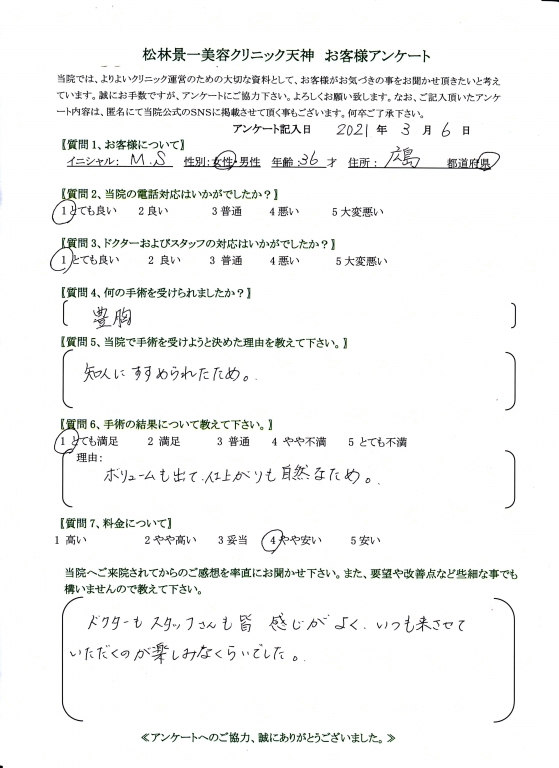 松林景一美容クリニック天神　お客様アンケート
当院では、よりよいクリニック運営のための大切な資料として、お客様がお気づきの事をお聞かせ頂きたいと考え
ています。誠にお手数ですが、アンケートにご協力下さい。よろしくお願い致します。なお、ご記入頂いたアンケ
ート内容は、匿名にて当院公式のSNSに掲載させて頂く事もございます。何卒ご了承下さい。
アンケート記入日　2021年　3　月　6　日
〖質問1、お客様について〗
イニシャル：　M.S　性別：女性・男性　年齢 36 才　住所：　広島　都道府県
〖質問2、当院の電話対応はいかがでしたか？〗
1 とても良い　2 良い　3 普通　4 悪い　5 大変悪い
〖質問3、ドクターおよびスタッフの対応はいかがでしたか？〗
1 とても良い　2 良い　3 普通　4 悪い　5 大変悪い
〖質問4、何の手術を受けられましたか？〗
豊胸
〖質問5、当院で手術を受けようと決めた理由を教えて下さい。〗
知人にすすめられたため。
〖質問6、手術の結果について教えて下さい。〗
1 とても満足　2 満足　3 普通　4 やや不満　5 とても不満
理由：
ボリュームも出て、仕上がりも自然なため。
〖質問7、料金について〗
1 高い　2 やや高い　3 妥当　4 やや安い　5 安い
当院へご来院されてからのご感想を率直にお聞かせ下さい。また、要望や改善点など些細な事でも
構いませんので教えて下さい。
ドクターもスタッフさんも皆　感じがよく、いつも来させて
いただくのが楽しみなくらいでした。
≪アンケートへのご協力、誠にありがとうございました。≫